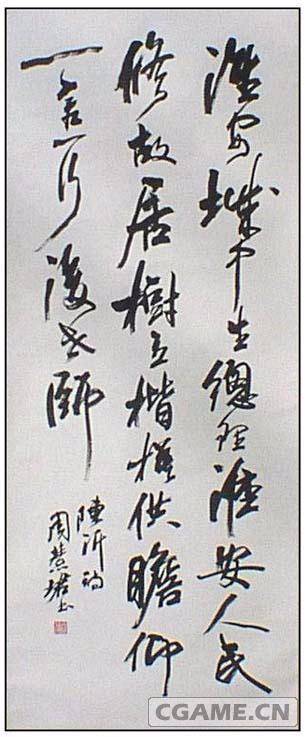 淮安城中生總理淮安人民
修故居樹立楷模供瞻仰
一言一行後世師
陳沂詩
周慧珺书
CGAME.CN